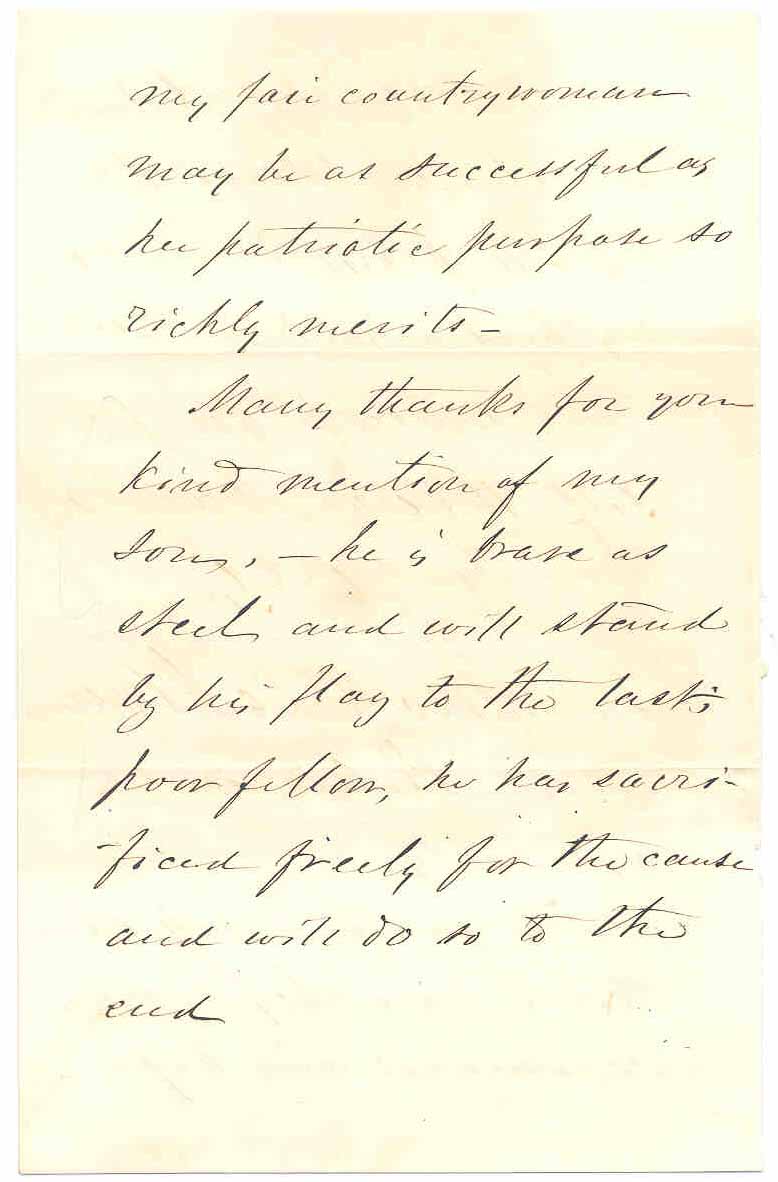 my fair countrywoman
may be as successful as
her patriotic purpose so
richly merits –
Many thanks for your
kind mention of my
son, – he is brave as
steel, and will stand
by his flag to the last;
poor fellow, he has sacri-
-ficed freely for the cause
and will do so to the
end